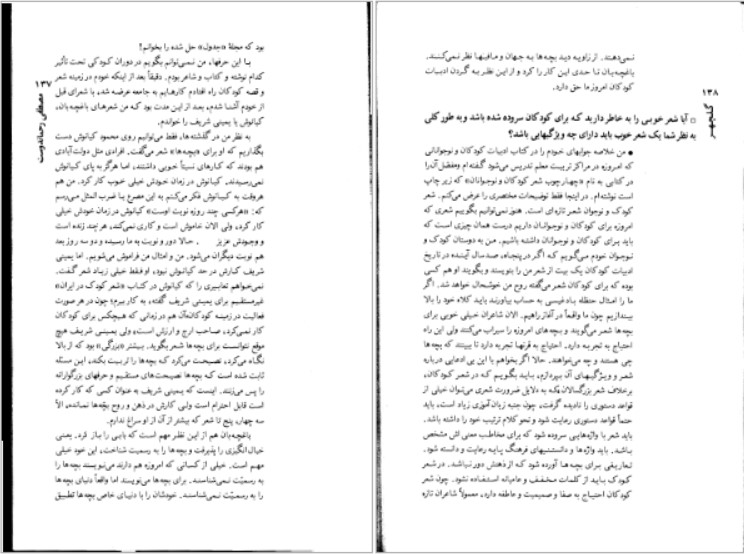 بود که مجلهٔ «جدول» حل شده را بخوانم!
با این حرفها، من نمی‌توانم بگویم در دوران کودکی تحت تأثیر
کدام نوشته و کتاب و شاعر بودم. دقیقاً بعد از اینکه خودم در زمینه شعر
و قصه کودکان راه افتادم کارهایم به جامعه عرضه شد، با شعرای قبل
از خودم آشنا شدم، بعد از این مدت بود که من شعرهای باغچه‌بان،
کیانوش یا یمینی شریف را خواندم.
به نظر من در گذشته‌ها، فقط می‌توانیم روی محمود کیانوش دست
بگذاریم که او برای «بچه‌ها» شعر می‌گفت. افرادی مثل دولت‌آبادی
هم بودند که کارهای نسبتاً خوبی داشتند، اما هرگز به پای کیانوش
نمی‌رسیدند. کیانوش در زمان خودش خیلی خوب کار کرد. من هم
هروقت به کیانوش فکر می‌کنم به این مصرع یا ضرب المثل می‌رسم
که: «هرکسی چند روزه نوبت اوست» کیانوش در زمان خودش خیلی
کار کرد، ولی الان خاموش است و کاری نمی‌کند، هر چند زنده است
و وجودش عزیز . حالا دور و نوبت به ما رسیده و دو سه روز بعد
هم نوبت دیگران می‌شود. من و امثال من فراموش می‌شویم. اما یمینی
شریف کارش در حد کیانوش نبود، او فقط خیلی زیاد شعر گفت.
نمی‌خواهم تعابیری را که کیانوش در کتاب «شعر کودک در ایران»
غیرمستقیم برای یمینی شریف گفته، به کار ببرم؛ چون در هر صورت
فعالیت در زمینه کودکان آن هم در زمانی که هیچکس برای کودکان
کار نمی‌کرد، صاحب ارج و ارزش است، ولی یمینی شریف هیچ
موقع نتوانست برای بچه‌ها شعر بگوید. بیشتر «بزرگی» بود که از بالا
نگاه می‌کرد، نصیحت می‌کرد که بچه‌ها را تربیت بکند، این مسئله
ثابت شده است که بچه‌ها نصیحت‌های مستقیم و حرفهای بزرگوارانه
را پس می‌زنند. اینست که یمینی شریف به عنوان کسی که کار کرده
است قابل احترام است ولی کارش در ذهن و روح بچه‌ها نمانده، الّا
سه چهار، پنج تا شعر که بیشتر از آن از او سراغ ندارم.
باغچه‌بان هم از این نظر مهم است که بابی را باز کرد. یعنی
خیال انگیزی را پذیرفت و بچه‌ها را به رسمیت شناخت، این خود خیلی
مهم است. خیلی از کسانی که امروزه هم دارند می‌نویسند بچه‌ها را
به رسمیت نمی‌شناسند. برای بچه‌ها می‌نویسند اما واقعاً دنیای بچه‌ها
را به رسمیّت نمی‌شناسند. خودشان را با دنیای خاص بچه‌ها تطبیق
۱۳۷
مصطفی رحماندوست
نمی‌دهند. از زاویه دید بچه‌ها به جهان و مافیها نظر نمی‌کنند.
باغچه‌بان تا حدی این کار را کرد و از این نظر به گردن ادبیات
کودکان امروز ما حق دارد.
□ آیا شعر خوبی را به خاطر دارید که برای کودکان سروده شده باشد و به طور کلی
به نظر شما یک شعر خوب باید دارای چه ویژگیهایی باشد؟
● من خلاصه جوابهای خودم را در کتاب ادبیات کودکان و نوجوانانی
که امروزه در مراکز تربیت معلم تدریس می‌شود گفته‌ام و مفصل آن را
در کتابی به نام «چهارچوب شعر کودکان و نوجوانان» که زیر چاپ
است نوشته‌ام. در اینجا فقط توضیحات مختصری را عرض می‌کنم. شعر
کودک و نوجوان شعر تازه‌ای است. هنوز نمی‌توانیم بگوییم شعری که
امروزه برای کودکان و نوجوانان داریم درست همان چیزی است که
باید برای کودکان و نوجوانان داشته باشیم. من به دوستان کودک و
نوجوان خودم می‌گویم که اگر در پنجاه، صد سال آینده در تاریخ
ادبیات کودکان یک بیت از شعر من را بنویسند و بگویند او هم کسی
بوده که برای کودکان شعر می‌گفته روح من خوشحال خواهد شد. اگر
ما را امثال حنظله بادغیسی به حساب بیاورند باید کلاه خود را بالا
بیندازیم چون ما واقعاً در آغاز راهیم. الان شاعران خیلی خوبی برای
بچه‌ها شعر می‌گویند و بچه‌های امروزه را سیراب می‌کنند ولی این راه
احتیاج به تجربه دارد. احتیاج به قرنها تجربه دارد تا ببینند که بچه‌ها
چی هستند و چه می‌خواهند. حالا اگر بخواهم با این بی‌ادعایی درباره
شعر و ویژگیهای آن بپردازم، باید بگویم که در شعر کودکان،
برخلاف شعر بزرگسالان که به دلایل ضرورت شعری می‌توان خیلی از
قواعد دستوری را نادیده گرفت، چون جنبه زبان‌آموزی زیاد است، باید
حتماً قواعد دستوری رعایت شود و نحو کلام ترتیب خود را داشته باشد.
باید شعر با واژه‌هایی سروده شود که برای مخاطب معنی اش مشخص
باشد. باید واژه‌ها و دانستنیهای فرهنگ پایه رعایت و دانسته شود.
تعاریفی برای بچه‌ها آورده شود که از ذهنش دور نباشد. در شعر
کودک باید از کلمات مخفف و عامیانه استفاده نشود. چون شعر
کودکان احتیاج به صفا و صمیمیت و عاطفه دارد، معمولاً شاعران تازه
۱۳۸
گلچهر